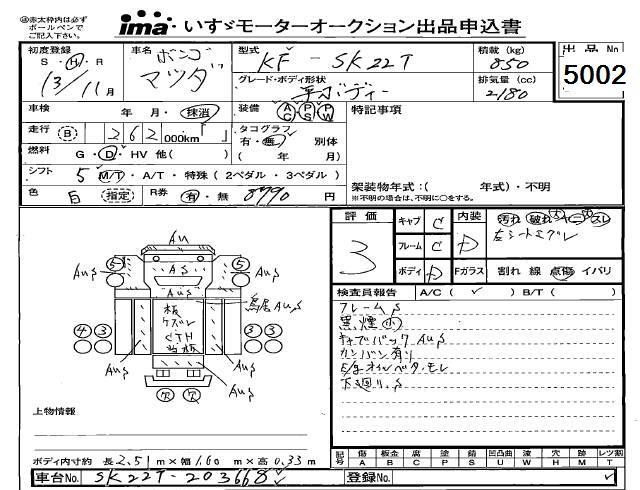 ㊟赤太枠内は必ず
ボールペンで
ご記入下さい。
ima いすゞモーターオークション出品申込書
初度登録
S・H・R
13/11月
車名 ボンゴ
マツダ
型式 KF-SK22T
グレード・ボディ形状
平ボディー
積載 (kg)
850
排気量 (cc)
2180
出品No
5002
車検 年 月・抹消
装備 AC PS PW
特記事項
走行 B 262 000km「 」
タコグラフ
有・無 別体
( 年 月)
燃料 G・D・HV 他( )
シフト 5 M/T・A/T・特殊(2ペダル・3ペダル)
色 白 指定 R券 有・無 8990円
架装物年式:( 年式)・不明
※不明の場合は、不明に○をする。
評価 3
キャブ C
フレーム C
ボディ D
内装 D
汚れ 破れ ヤニ スレ
左シートエグレ
Fガラス 割れ 線 点傷 イバリ
検査員報告 A/C( ✓ ) B/T( )
フレームS
黒煙小
キャブバックAUS
カンバン有り
E/gオイルベタ・モレ
下廻りS
AU
5 5
AUS AS AUS
AUS
鳥居AUS
板
ケズレ
CTH
4 3 3
AUS AUS
欠 欠
上物情報
ボディ内寸約 長2.51m×幅1.60m×高0.33m
記号 傷A 板金B 腐C 塗P 錆S 凹凸曲U 波W 穴H 跡M レツ割T
車台No. SK22T-203668
登録No.